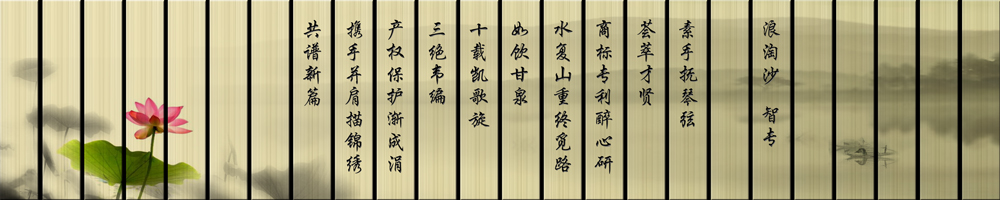 浪淘沙 智专
素手抚琴弦
荟萃才贤
商标专利醉心研
水复山重终觅路
如饮甘泉
十载凯歌旋
三绝韦编
产权保护渐成涓
携手并肩描锦绣
共谱新篇